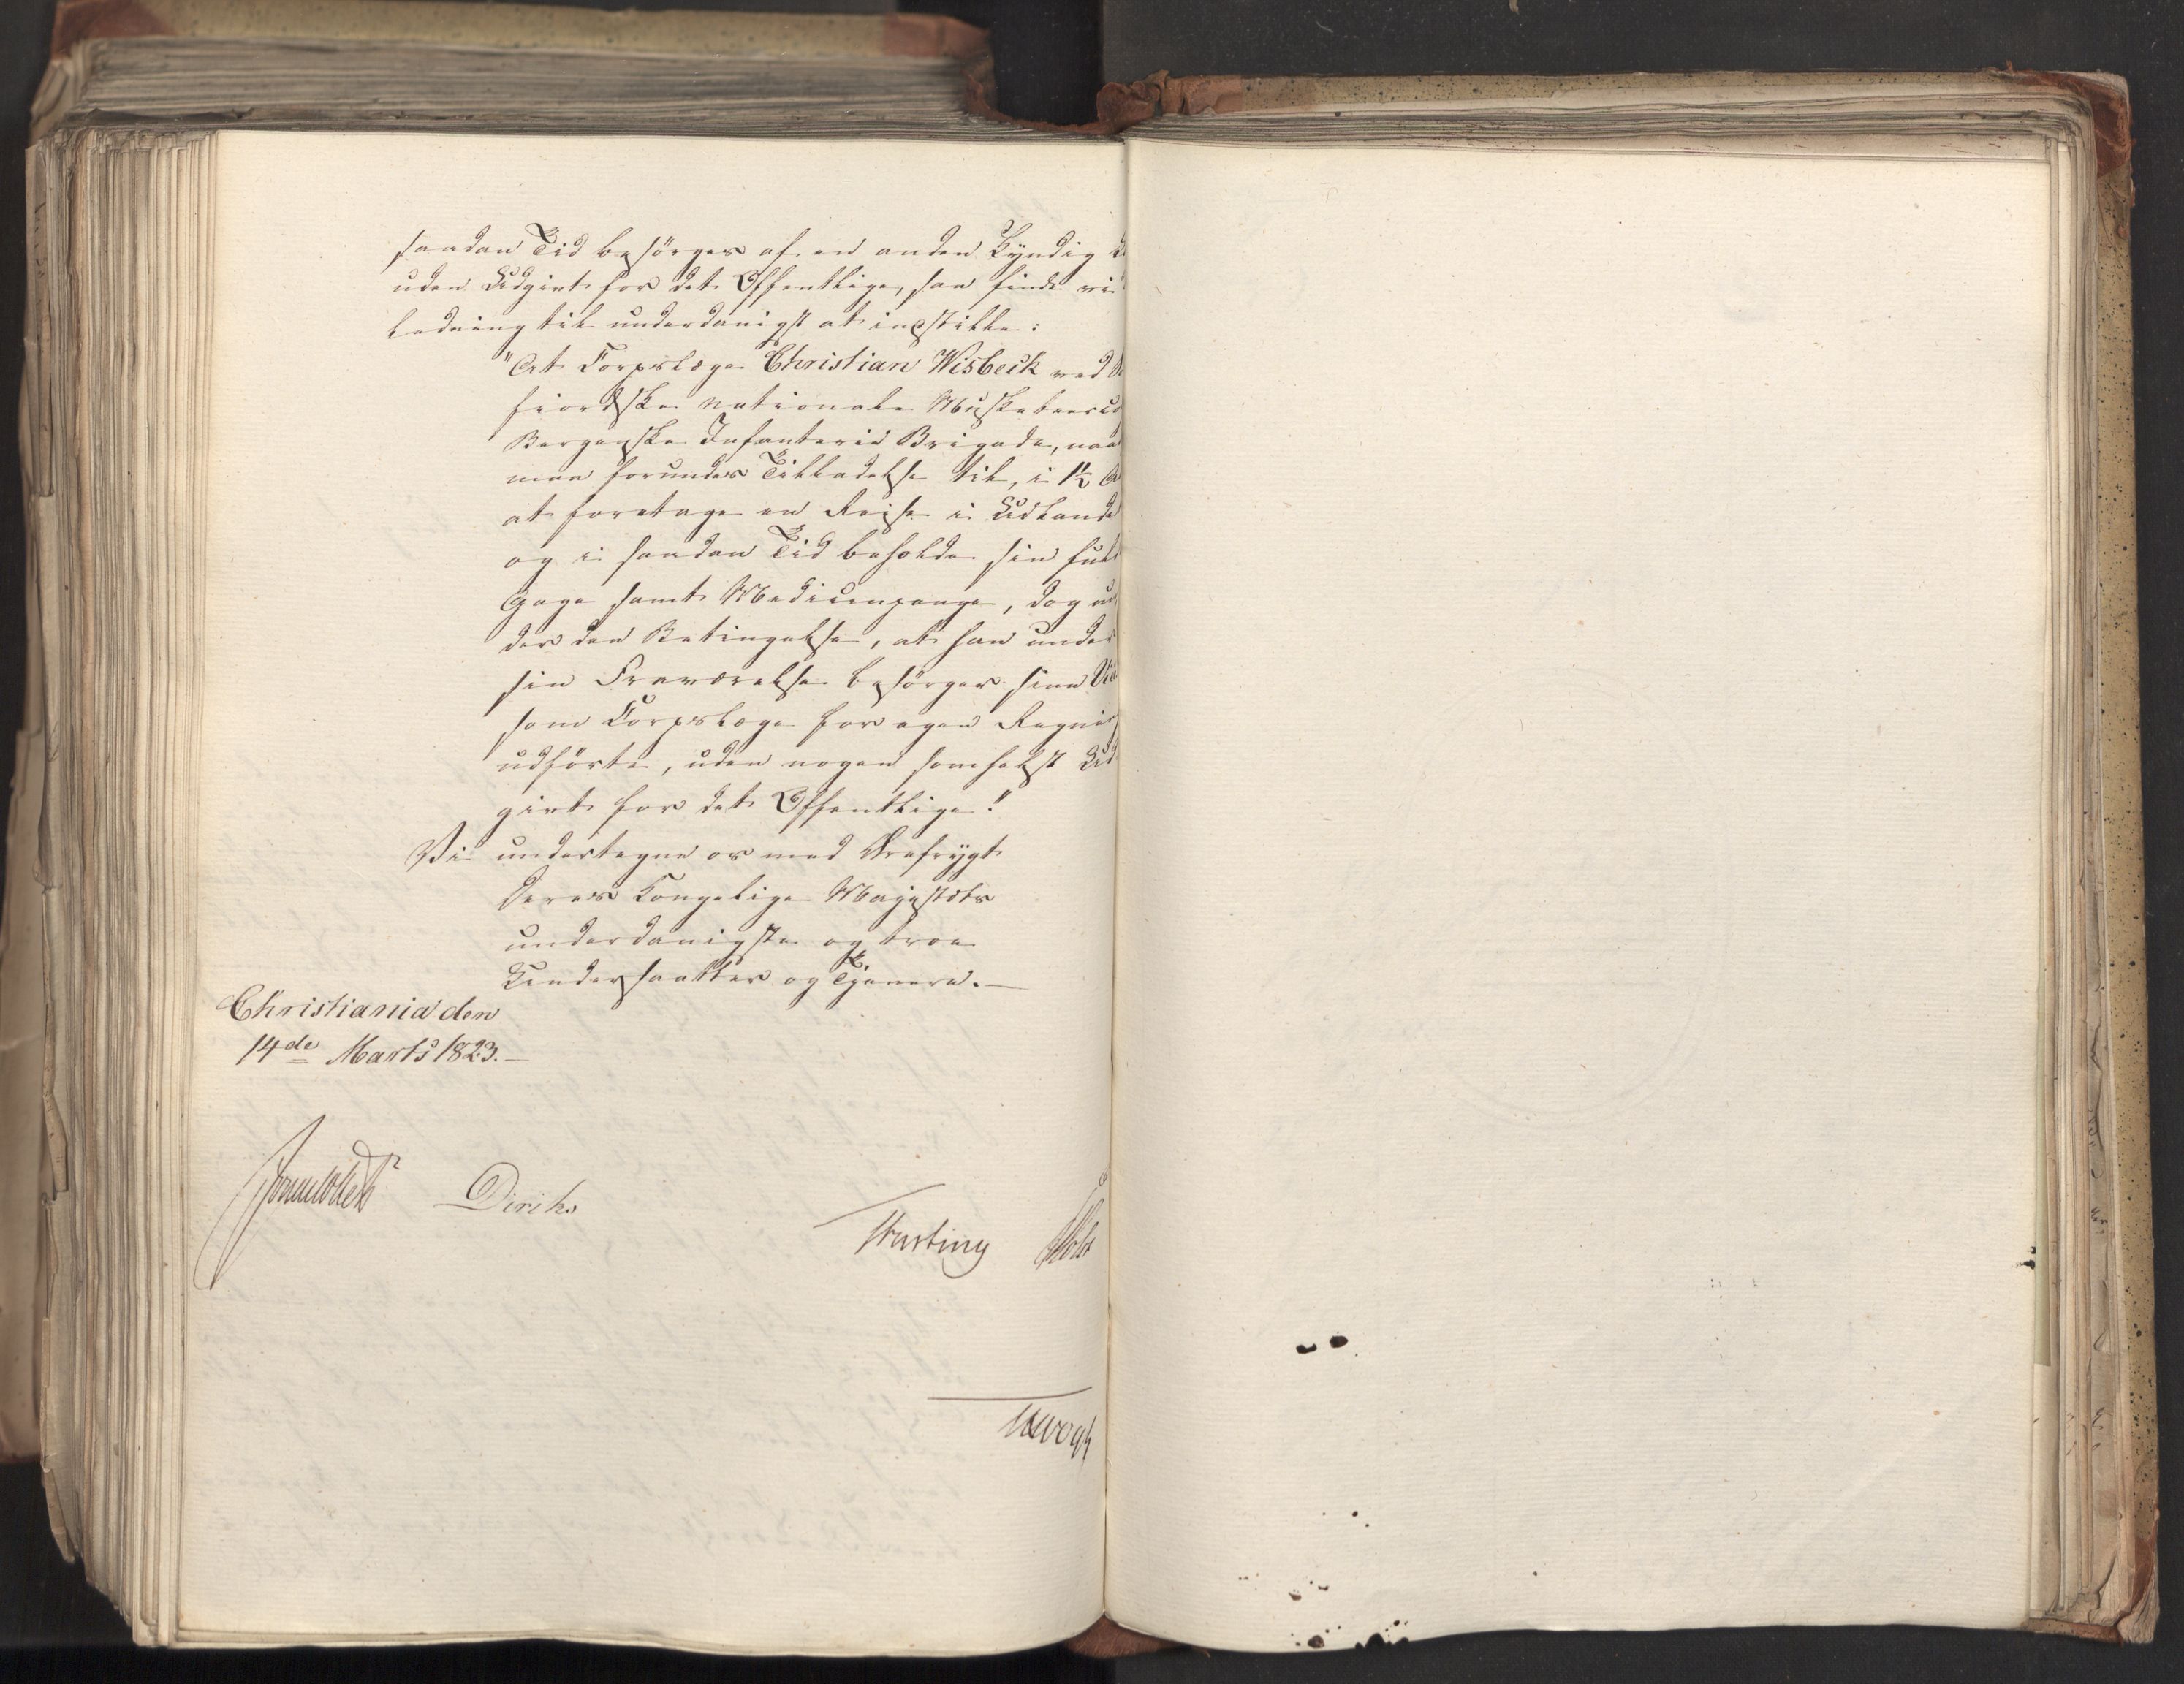 saadan Tid besörges af en anden Kyndig
uden Udgivt for det Offentlige, saa finde vi
ledning til underdanigst at indstille:
"At Corpslæge Christian Wisbeck ved
fiordske nationale Musketeercorps
Bergenske Infanterie Brigade, naa
maa forundes Tilladelse til, i 1½
at foretage en Reise i Udlandet
og i saadan Tid beholde sin fuld
Gage samt Medicinpenge, dog un
der den Betingelse, at han under
sin Fraværelse besörger sine
som Corpslæge for egen Regning
udförte, uden nogen somhelst Ud
givt for det Offentlige."
Vi undertegne os med Ærefrygt
Deres Kongelige Majestæts
underdanigste og troe
Undersaatter og Tjenere.—
Christiania den
14de Marts 1823.—
Sommerfeldt Diriks
Krefting Holst
Vogt